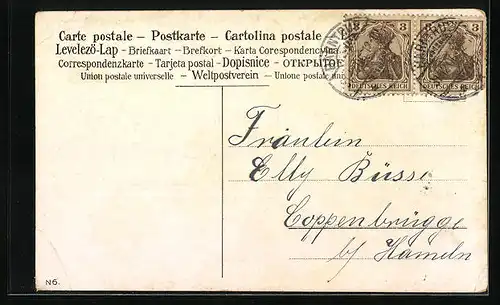 Carte postale – Postkarte – Cartolina postale
Levelező-Lap – Briefkaart – Brefkort – Karta Corespondencyjna
Correspondenzkarte – Tarjeta postal – Dopisnice – ОТКРЫТОЕ
Union postale universelle – Weltpostverein – Unione postale
3 3
DEUTSCHES REICH DEUTSCHES REICH
Fräulein
Elly Büsse
Coppenbrügge
b/ Hameln
N6.